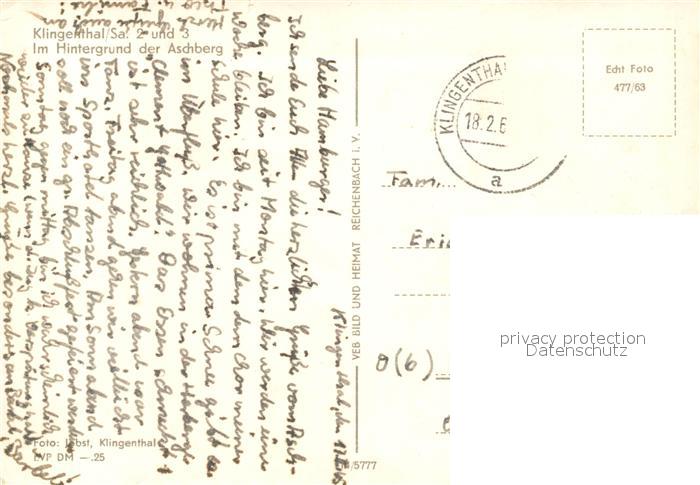 Klingenthal/Sa. 2 und 3
Im Hintergrund der Aschberg
Klingenthal, den
Liebe Hamburger!
Ich sende Euch Allen die herzlichsten Grüße vom Asch-
berg. Ich bin seit Montag hier. Wir werden eine
Woche bleiben. Ich bin mit dem chor meiner
Schule hier. Es ist prima. Schnee gibt es
im Überfluß. Wir wohnen in der
"Clement Gottwald". Das Essen schmeckt u.
ist sehr reichlich. Gestern abend war
Tanz. Freitag abend gehen wir vielleicht
ins Sporthotel tanzen. Am Sonnabend
soll noch ein gr. Abschlußfest gefeiert werden.
Sonntag gegen mittag bin ich wahrscheinlich
wieder zuhause
Nochmals herzl. Grüße besonders an
Herzl. Grüße auch an
u. Familie!
Foto: Jobst, Klingenthal
EVP DM —.25
VEB BILD UND HEIMAT REICHENBACH i. V.
/5777
KLINGENTHA
18.2.6
a
Echt Foto
477/63
Fam.
Eri
O(6)
privacy protection
Datenschutz